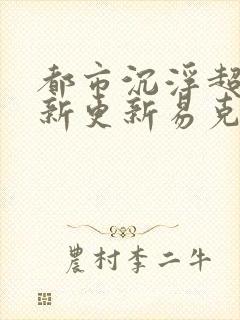 都市沉浮超
新更新易克
農村李二牛